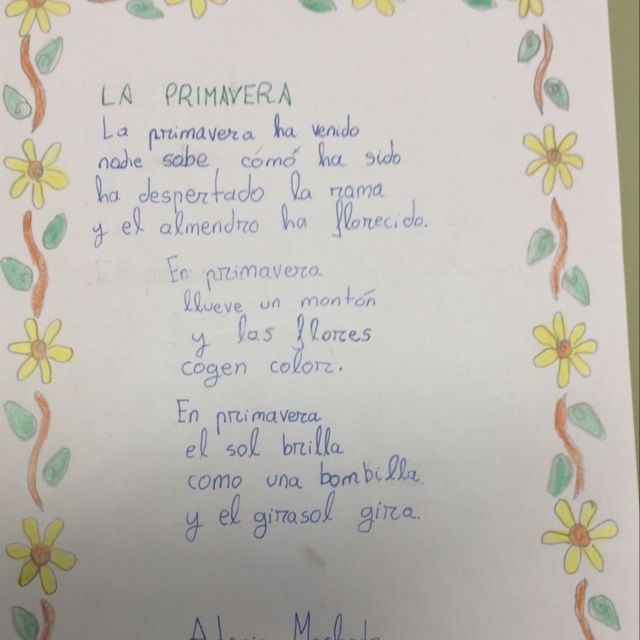 LA PRIMAVERA
La primavera ha venido
nadie sabe cómo ha sido
ha despertado la rama
y el almendro ha florecido.
En primavera
llueve un montón
y las flores
cogen color.
En primavera
el sol brilla
como una bombilla
y el girasol gira.